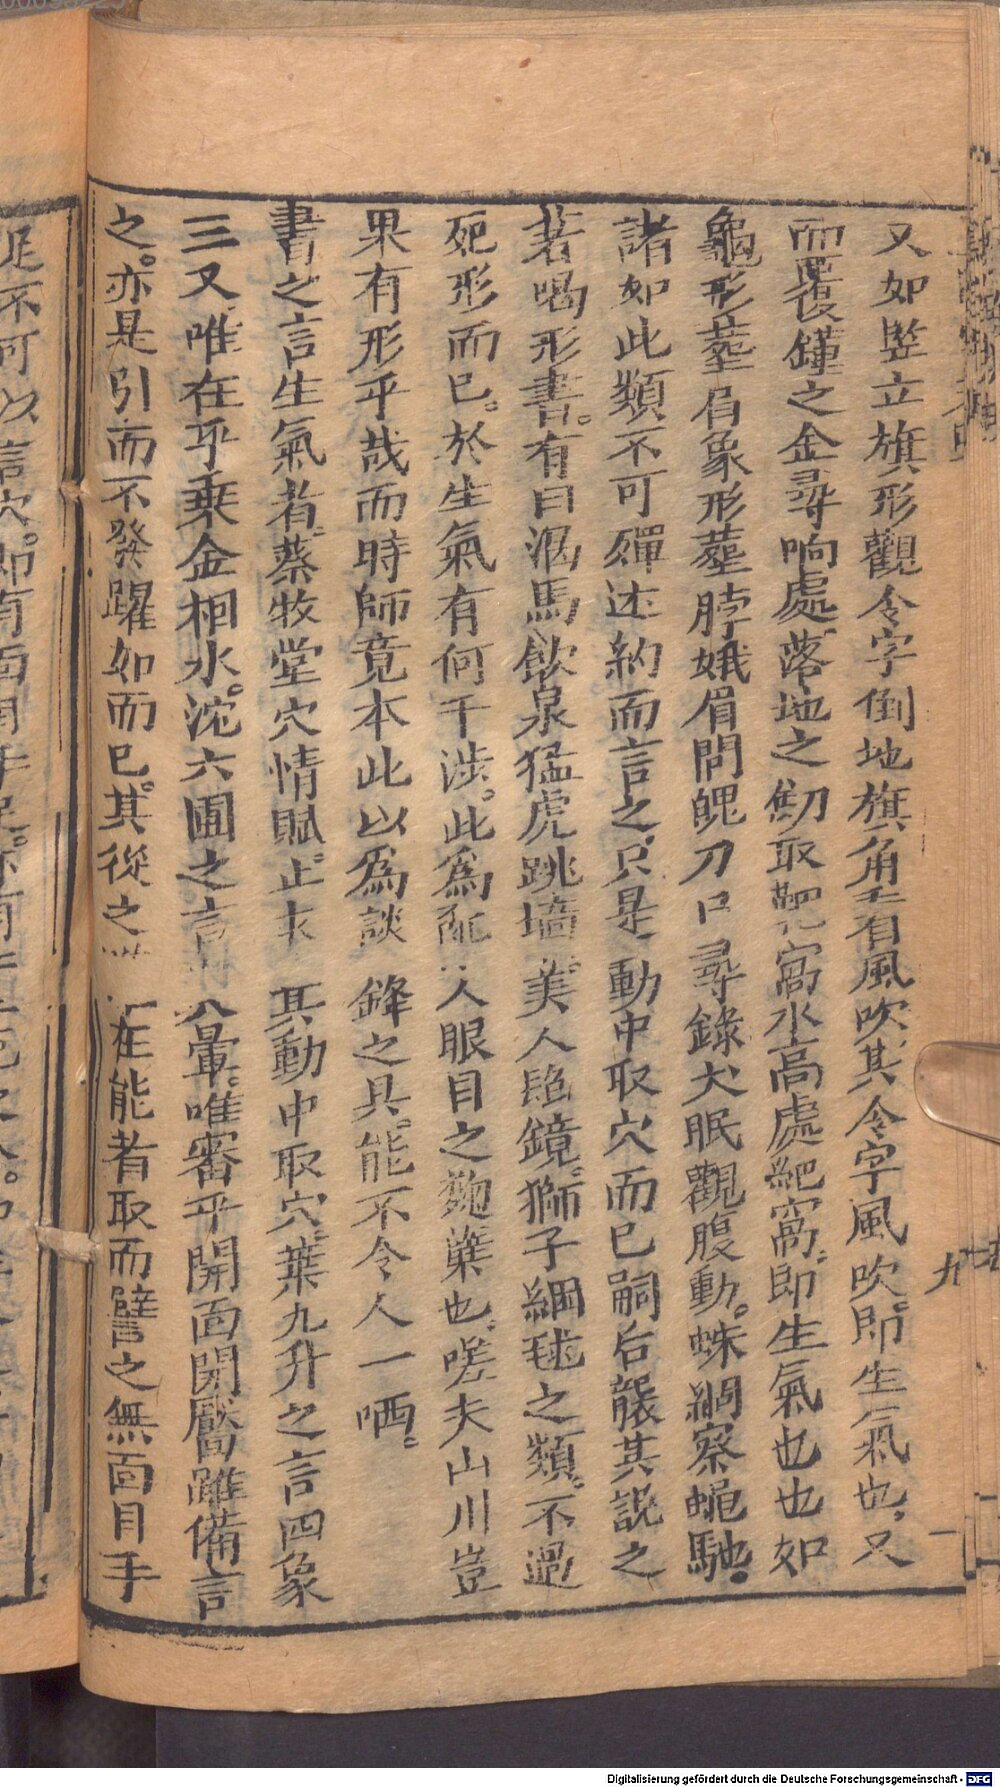 又如竪立旗形觀令字倒地旗角至有風吹其令字風吹即生氣也又
而覆鐘之金尋响處落地之劒取靶窩水高處靶窩即生氣也也如
龜形葬肩象形葬脖娥眉問魄刀口尋錄犬眠觀腹動。蛛網察蠅馳。
諸如此類不可殫述約而言之只是動中取穴而已嗣后襲其説之
若喝形書。有曰渴馬飲泉猛虎跳墻美人照鏡。獅子綱毬之類。不過
死形而已。於生氣有何干涉。此為 人眼目之麯蘖也。嗟夫山川豈
果有形乎哉而時師竟本此以為談鋒之具。能不令人一哂。
書之言生氣者蔡牧堂穴情賦。止 其動中取穴。葉九升之言四象
三又唯在乎乗金相水。沱六圃之言 八暈。唯審乎開面開靨雖備言
之。亦是引而不發躍如而已。其從之 在能者取而譬之無面目手
足不可以言穴。即有面
九
Digitalisierung gefördert durch die Deutsche Forschungsgemeinschaft - DFG